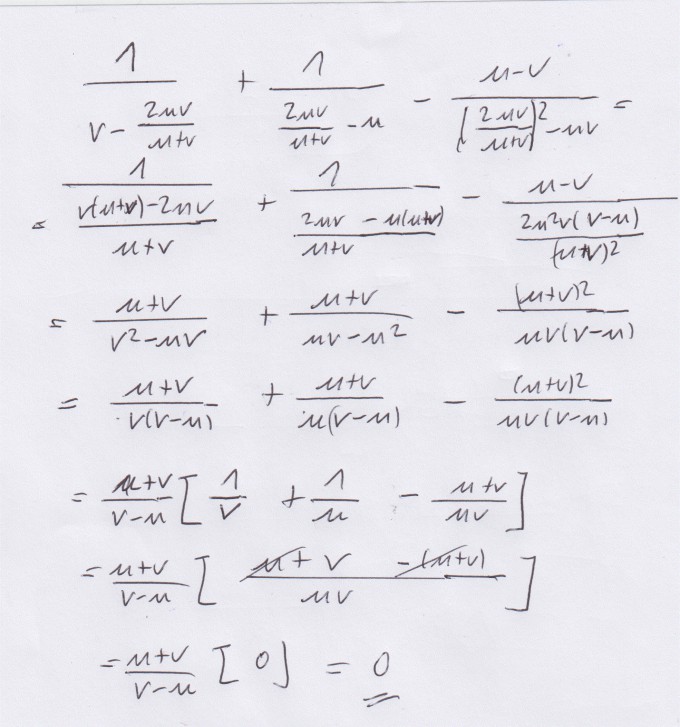 1/(v - 2uv/(u+v)) + 1/(2uv/(u+v) - u) - (u-v)/((2uv/(u+v))^2 - uv) =
= 1/((v(u+v)-2uv)/(u+v)) + 1/((2uv - u(u+v))/(u+v)) - (u-v)/((2u^2v(v-u))/(u+v)^2)
= (u+v)/(v^2-uv) + (u+v)/(uv-u^2) - (u+v)^2/(uv(v-u))
= (u+v)/(v(v-u)) + (u+v)/(u(v-u)) - (u+v)^2/(uv(v-u))
= (u+v)/(v-u) [ 1/v + 1/u - (u+v)/(uv) ]
= (u+v)/(v-u) [ (u+v -(u+v))/(uv) ]
= (u+v)/(v-u) [ 0 ] = 0